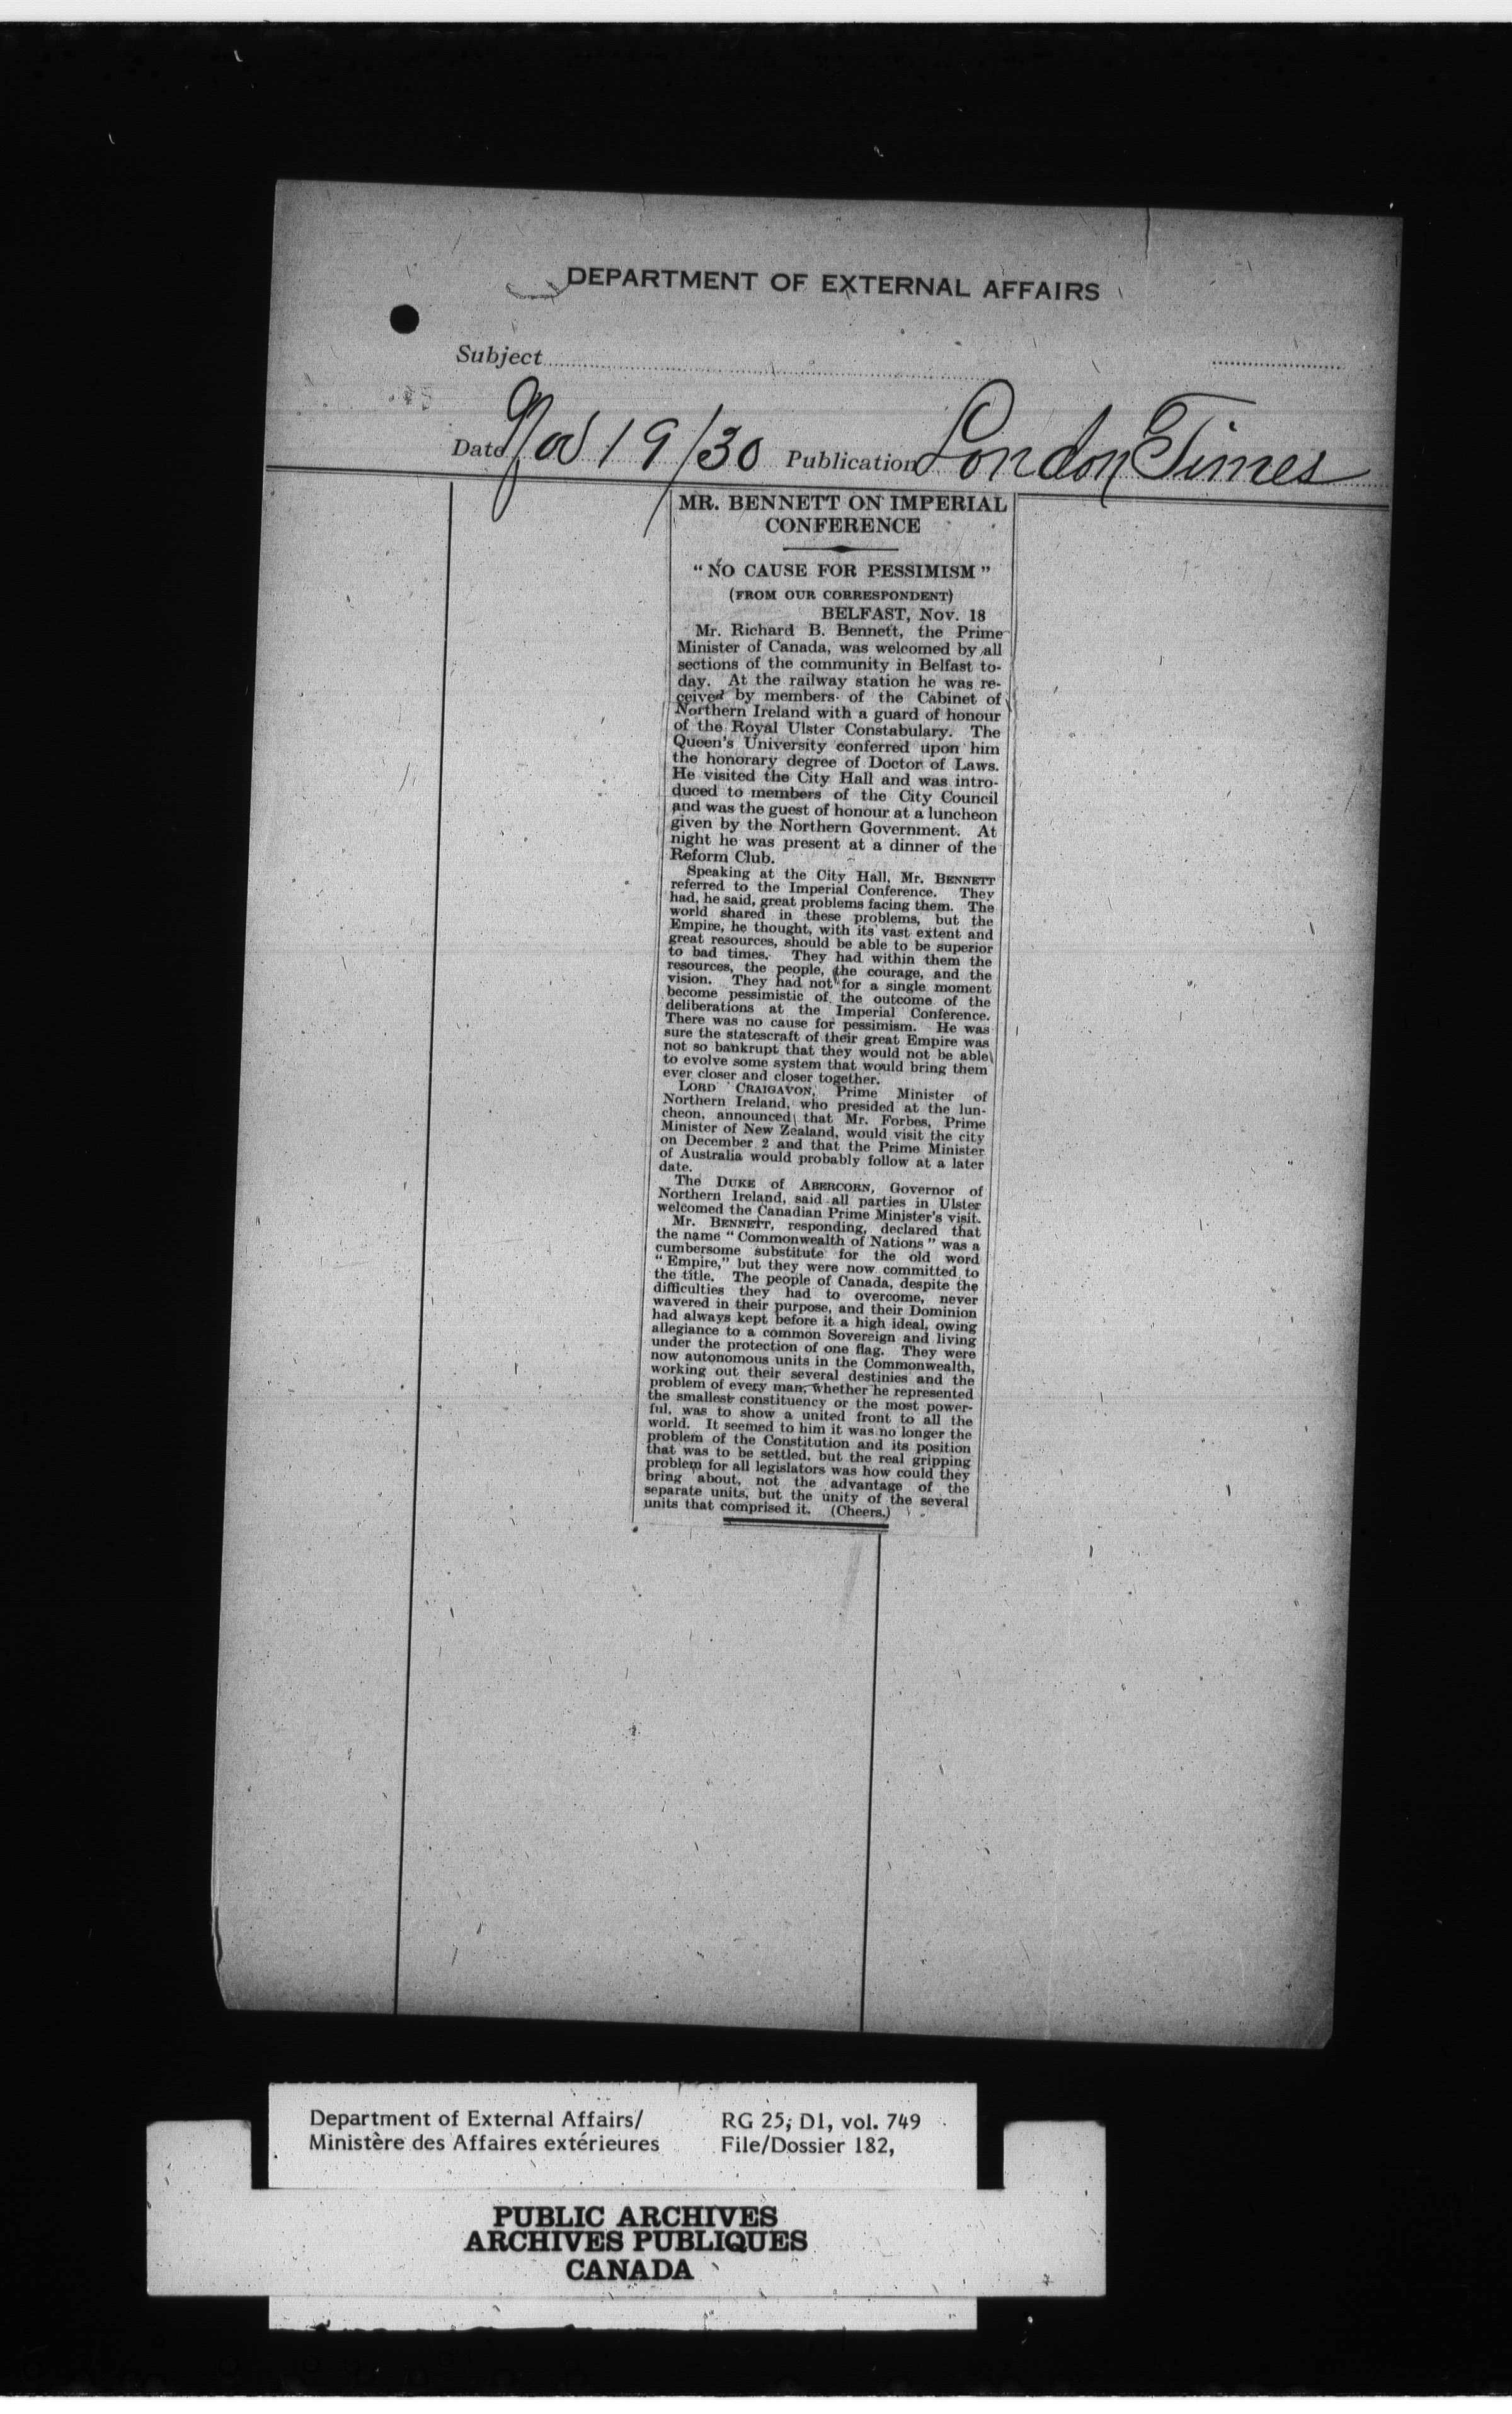 DEPARTMENT OF EXTERNAL AFFAIRS
Subject
Date Nov 19/30 Publication London Times
MR. BENNETT ON IMPERIAL
CONFERENCE
"NO CAUSE FOR PESSIMISM"
(FROM OUR CORRESPONDENT)
BELFAST, Nov. 18
Mr. Richard B. Bennett, the Prime
Minister of Canada, was welcomed by all
sections of the community in Belfast to-
day. At the railway station he was re-
ceived by members of the Cabinet of
Northern Ireland with a guard of honour
of the Royal Ulster Constabulary. The
Queen's University conferred upon him
the honorary degree of Doctor of Laws.
He visited the City Hall and was intro-
duced to members of the City Council
and was the guest of honour at a luncheon
given by the Northern Government. At
night he was present at a dinner of the
Reform Club.
Speaking at the City Hall, Mr. BENNETT
referred to the Imperial Conference. They
had, he said, great problems facing them. The
world shared in these problems, but the
Empire, he thought, with its vast extent and
great resources, should be able to be superior
to bad times. They had within them the
resources, the people, the courage, and the
vision. They had not for a single moment
become pessimistic of the outcome of the
deliberations at the Imperial Conference.
There was no cause for pessimism. He was
sure the statescraft of their great Empire was
not so bankrupt that they would not be able
to evolve some system that would bring them
ever closer and closer together.
LORD CRAIGAVON, Prime Minister of
Northern Ireland, who presided at the lun-
cheon, announced that Mr. Forbes, Prime
Minister of New Zealand, would visit the city
on December 2 and that the Prime Minister
of Australia would probably follow at a later
date.
The DUKE of ABERCORN, Governor of
Northern Ireland, said all parties in Ulster
welcomed the Canadian Prime Minister's visit.
Mr. BENNETT, responding, declared that
the name "Commonwealth of Nations" was a
cumbersome substitute for the old word
"Empire," but they were now committed to
the title. The people of Canada, despite the
difficulties they had to overcome, never
wavered in their purpose, and their Dominion
had always kept before it a high ideal, owing
allegiance to a common Sovereign and living
under the protection of one flag. They were
now autonomous units in the Commonwealth,
working out their several destinies and the
problem of every man, whether he represented
the smallest constituency or the most power-
ful, was to show a united front to all the
world. It seemed to him it was no longer the
problem of the Constitution and its position
that was to be settled, but the real gripping
problem for all legislators was how could they
bring about, not the advantage of the
separate units, but the unity of the several
units that comprised it. (Cheers.)
Department of External Affairs/ RG 25, D1, vol. 749
Ministère des Affaires extérieures File/Dossier 182,
PUBLIC ARCHIVES
ARCHIVES PUBLIQUES
CANADA